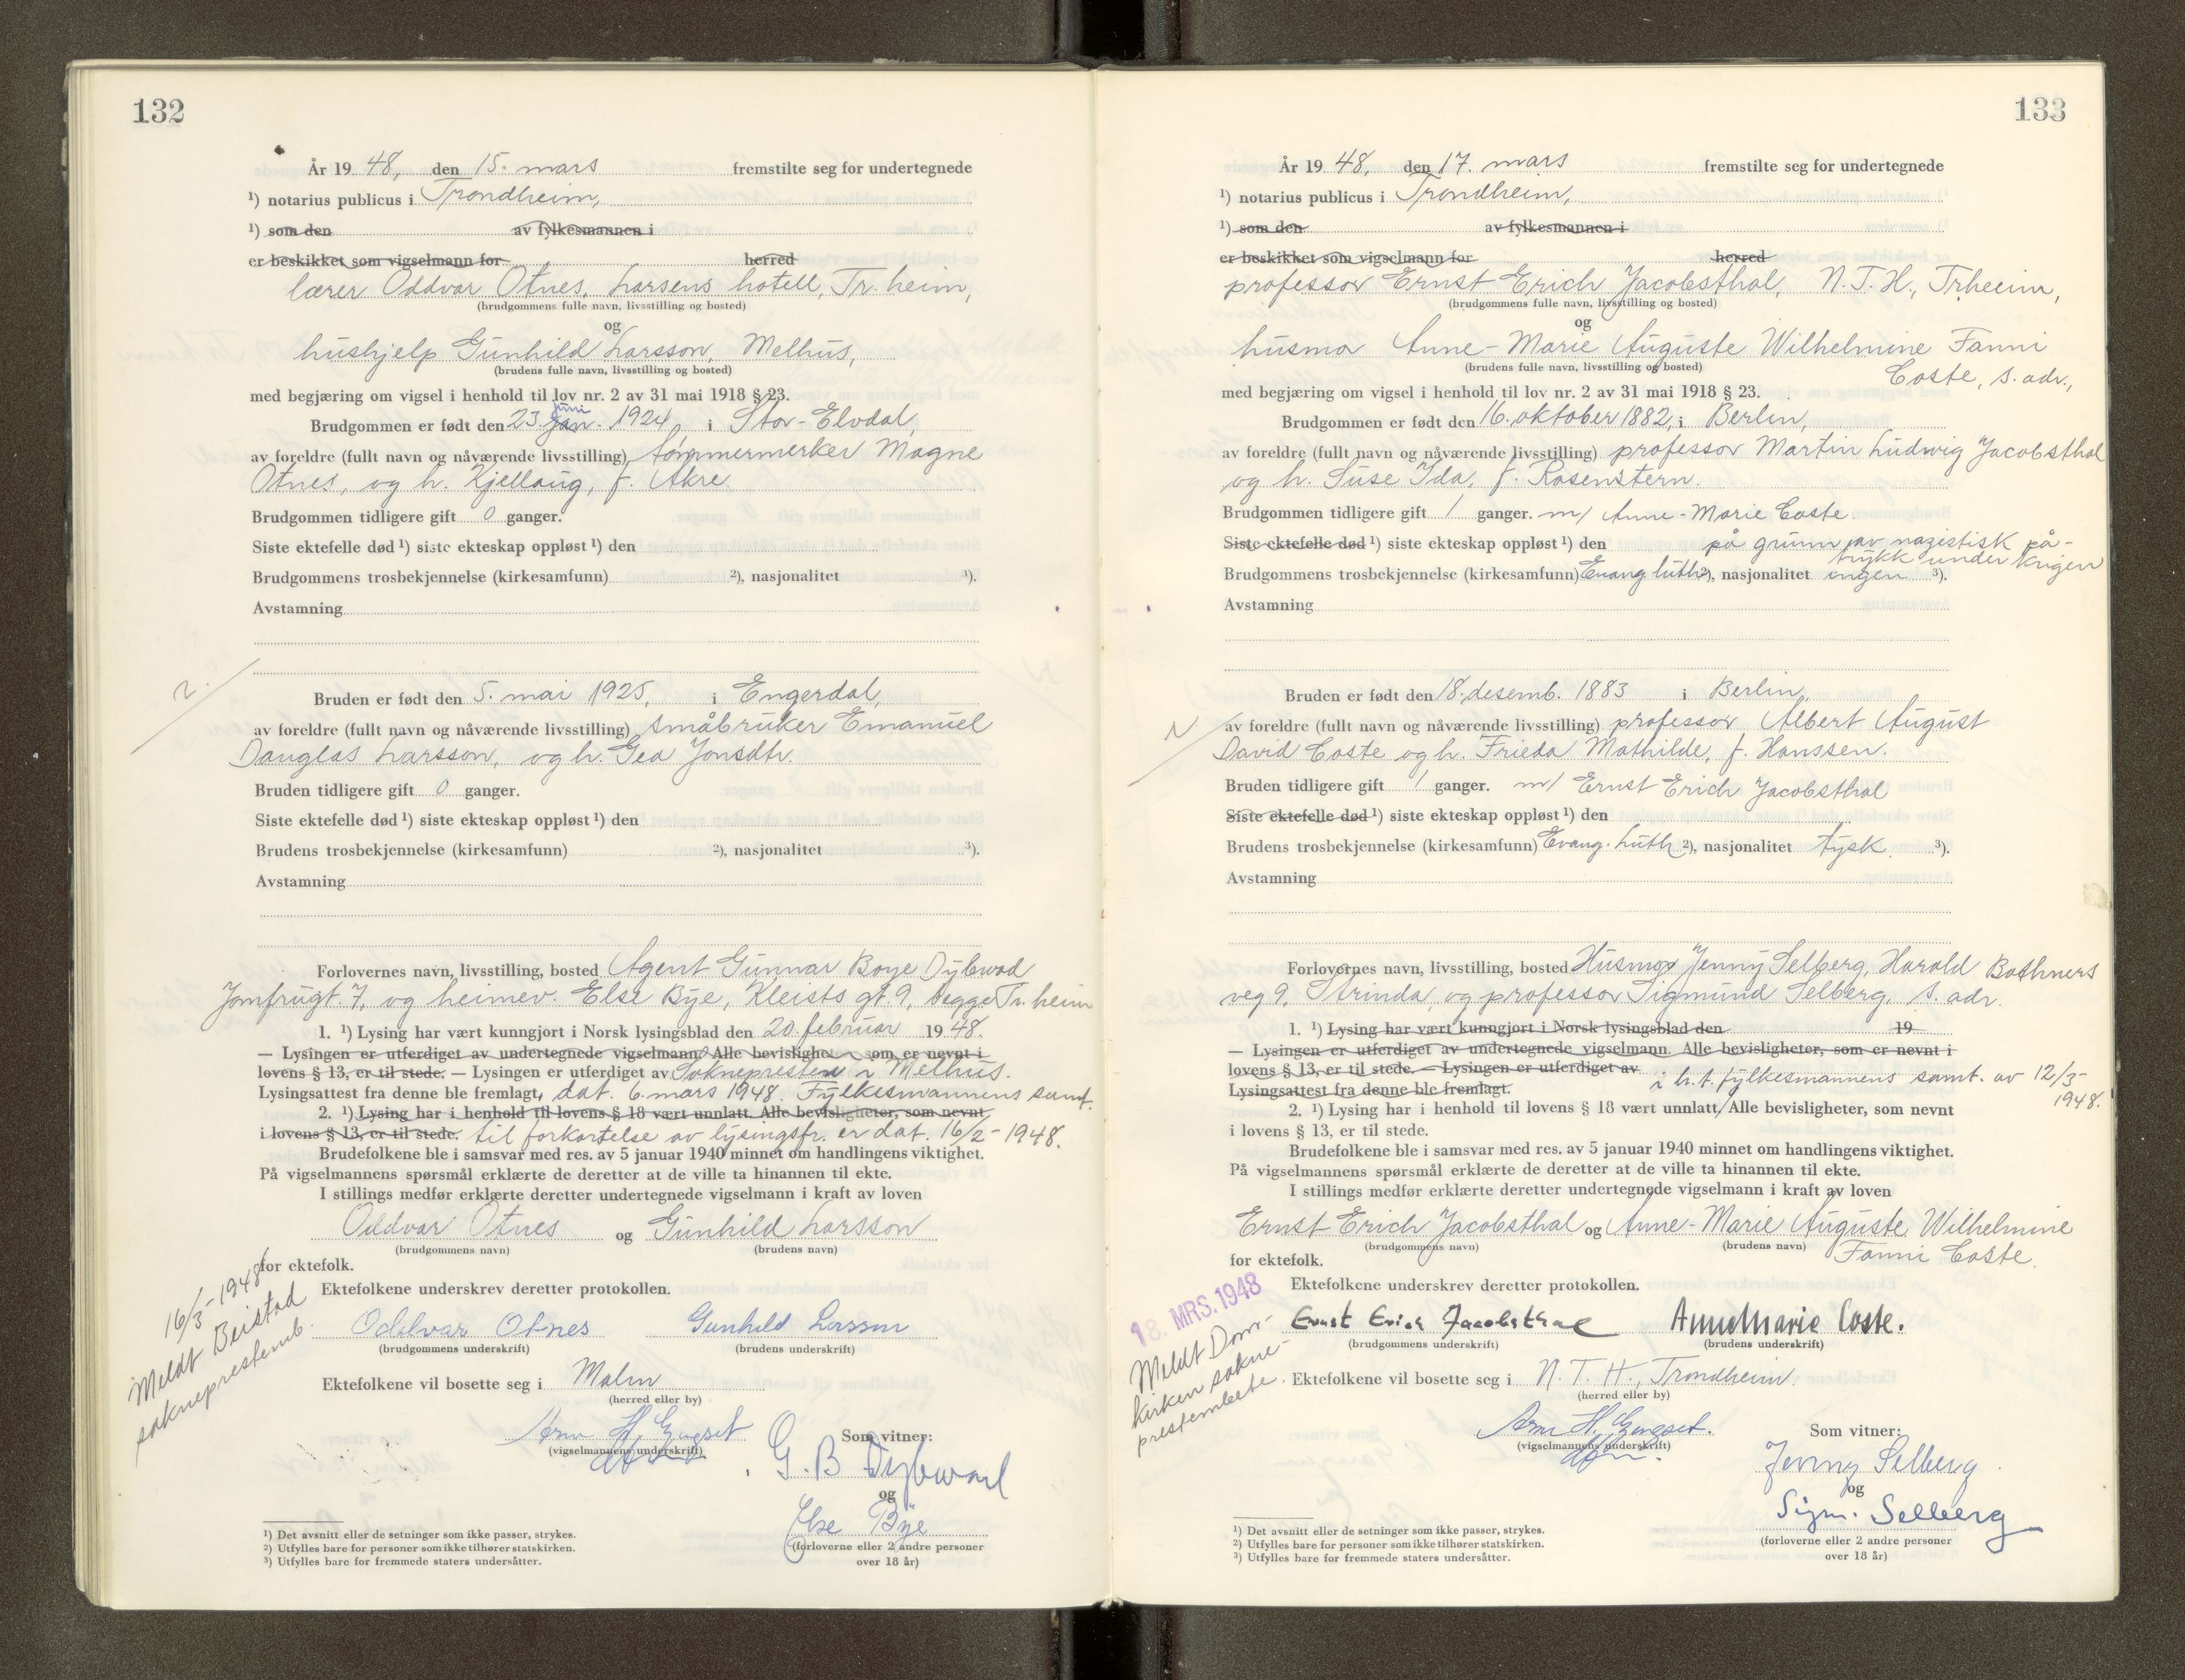 132
År 19 48, den 15. mars fremstilte seg for undertegnede
¹) notarius publicus i Trondheim,
¹) som den av fylkesmannen i
er beskikket som vigselmann for herred
lærer Oddvar Otnes, Larsens hotell, Tr.heim,
(brudgommens fulle navn, livsstilling og bosted)
og
hushjelp Gunhild Larsson, Melhus,
(brudens fulle navn, livsstilling og bosted)
med begjæring om vigsel i henhold til lov nr. 2 av 31 mai 1918 § 23.
juni
Brudgommen er født den 23. jan. 1924 i Stor-Elvdal,
av foreldre (fullt navn og nåværende livsstilling) tømmermerker Magne
Otnes, og h. Kjellaug, f. Akre.
Brudgommen tidligere gift 0 ganger.
Siste ektefelle død ¹) siste ekteskap oppløst ¹) den
Brudgommens trosbekjennelse (kirkesamfunn) ²), nasjonalitet ³).
Avstamning
Bruden er født den 5. mai 1925, i Engerdal,
av foreldre (fullt navn og nåværende livsstilling) småbruker Emanuel
Douglas Larsson, og h. Gea Jonsdtr.
Bruden tidligere gift 0 ganger.
Siste ektefelle død ¹) siste ekteskap oppløst ¹) den
Brudens trosbekjennelse (kirkesamfunn) ²), nasjonalitet ³).
Avstamning
Forlovernes navn, livsstilling, bosted Agent Gunnar Boye Dybwad
Jomfrugt. 7, og heimev. Else Bye, Kleists gt. 9, begge Tr.heim
1. ¹) Lysing har vært kunngjort i Norsk lysingsblad den 20. februar 19 48.
— Lysingen er utferdiget av undertegnede vigselmann. Alle bevisligheter, som er nevnt i
lovens § 13, er til stede. — Lysingen er utferdiget av Soknepresten i Melhus.
Lysingsattest fra denne ble fremlagt, dat. 6. mars 1948. Fylkesmannens samt.
2. ¹) Lysing har i henhold til lovens § 18 vært unnlatt. Alle bevisligheter, som nevnt,
i lovens § 13, er til stede. til forkortelse av lysingsfr. er dat. 16/2-1948.
Brudefolkene ble i samsvar med res. av 5 januar 1940 minnet om handlingens viktighet.
På vigselmannens spørsmål erklærte de deretter at de ville ta hinannen til ekte.
I stillings medfør erklærte deretter undertegnede vigselmann i kraft av loven
Oddvar Otnes og Gunhild Larsson
(brudgommens navn) (brudens navn)
for ektefolk.
Ektefolkene underskrev deretter protokollen.
16/3-1948
Meldt Beistad
sokneprestemb.
Oddvar Otnes Gunhild Larsson
(brudgommens underskrift) (brudens underskrift)
Ektefolkene vil bosette seg i Malm
(herred eller by)
Arne H. Gungset
(vigselmannens underskrift)
Som vitner:
G. B Dybwad
og
Else Bye
(forloverne eller 2 andre personer
over 18 år)
¹) Det avsnitt eller de setninger som ikke passer, strykes.
²) Utfylles bare for personer som ikke tilhører statskirken.
³) Utfylles bare for fremmede staters undersåtter.
133
År 19 48, den 17. mars fremstilte seg for undertegnede
¹) notarius publicus i Trondheim,
¹) som den av fylkesmannen i
er beskikket som vigselmann for herred
professor Ernst Erich Jacobsthal, N.T.H., Trheim,
(brudgommens fulle navn, livsstilling og bosted)
og
husmor Anne-Marie Auguste Wilhelmine Fanni
(brudens fulle navn, livsstilling og bosted)
Coste, s. adr.,
med begjæring om vigsel i henhold til lov nr. 2 av 31 mai 1918 § 23.
Brudgommen er født den 16. oktober 1882, i Berlin,
av foreldre (fullt navn og nåværende livsstilling) professor Martin Ludwig Jacobsthal
og h. Suse Ida, f. Rosenstern.
Brudgommen tidligere gift 1 ganger. m/ Anne-Marie Coste.
Siste ektefelle død ¹) siste ekteskap oppløst ¹) den på grunn av nazistisk på-
trykk under krigen
Brudgommens trosbekjennelse (kirkesamfunn) Evang. luth ²), nasjonalitet ingen ³).
Avstamning
Bruden er født den 18. desemb. 1883 i Berlin,
av foreldre (fullt navn og nåværende livsstilling) professor Albert August
David Coste og h. Frieda Mathilde, f. Hanssen.
Bruden tidligere gift 1 ganger. m/ Ernst Erich Jacobsthal
Siste ektefelle død ¹) siste ekteskap oppløst ¹) den
Brudens trosbekjennelse (kirkesamfunn) Evang. luth ²), nasjonalitet tysk. ³).
Avstamning
Forlovernes navn, livsstilling, bosted Husmor Jenny Selberg, Harald Bothners
veg 9, Strinda, og professor Sigmund Selberg, s. adr.
1. ¹) Lysing har vært kunngjort i Norsk lysingsblad den 19
— Lysingen er utferdiget av undertegnede vigselmann. Alle bevisligheter, som er nevnt i
lovens § 13, er til stede. — Lysingen er utferdiget av
Lysingsattest fra denne ble fremlagt. i h.t. fylkesmannens samt. av 12/3-
1948.
2. ¹) Lysing har i henhold til lovens § 18 vært unnlatt/ Alle bevisligheter, som nevnt
i lovens § 13, er til stede.
Brudefolkene ble i samsvar med res. av 5 januar 1940 minnet om handlingens viktighet.
På vigselmannens spørsmål erklærte de deretter at de ville ta hinannen til ekte.
I stillings medfør erklærte deretter undertegnede vigselmann i kraft av loven
Ernst Erich Jacobsthal og Anne-Marie Auguste Wilhelmine
(brudgommens navn) (brudens navn) Fanni Coste.
for ektefolk.
Ektefolkene underskrev deretter protokollen.
18. MRS. 1948
Meldt Dom-
kirken sokne-
prestembete.
Ernst Erich Jacobsthal AnneMarie Coste.
(brudgommens underskrift) (brudens underskrift)
Ektefolkene vil bosette seg i N.T.H., Trondheim.
(herred eller by)
Arne H. Gungset.
(vigselmannens underskrift)
Som vitner:
Jenny Selberg
og
Sigm. Selberg
(forloverne eller 2 andre personer
over 18 år)
¹) Det avsnitt eller de setninger som ikke passer, strykes.
²) Utfylles bare for personer som ikke tilhører statskirken.
³) Utfylles bare for fremmede staters undersåtter.